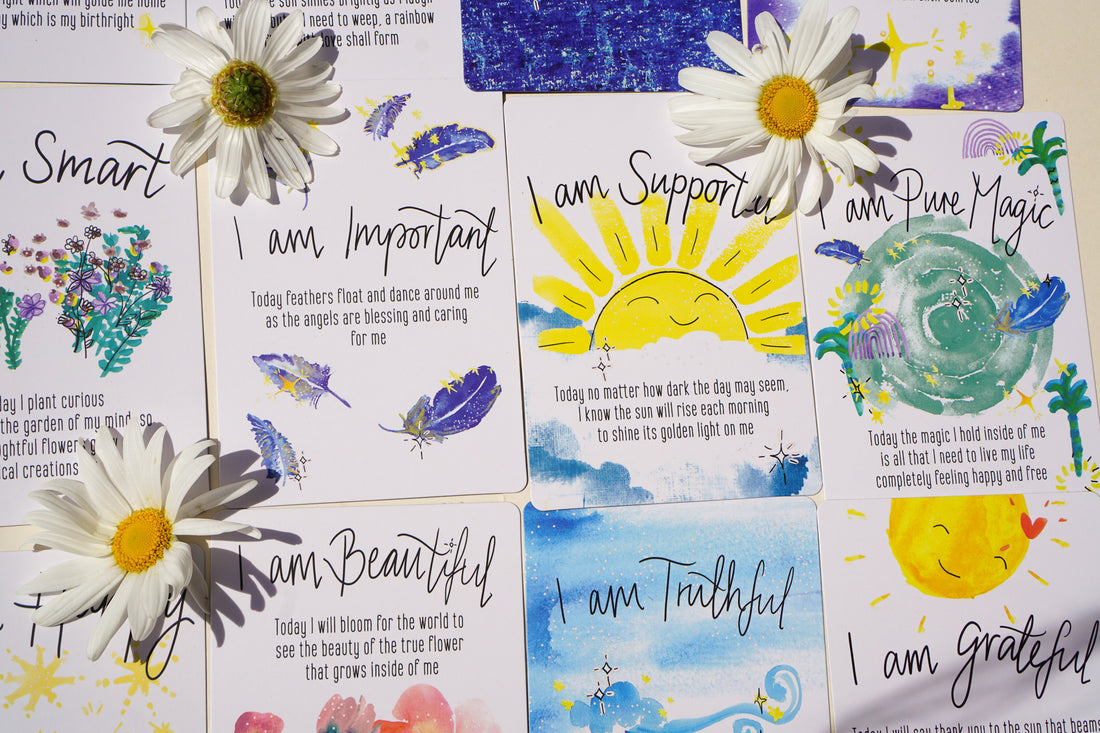 which will guide me home
y which is my birthright
I need to weep, a rainbow
love shall form
Smart
day I plant curious
the garden of my mind, so
creations
I am Important
Today feathers float and dance around me
as the angels are blessing and caring
for me
I am Supporte
Today no matter how dark the day may seem,
I know the sun will rise each morning
to shine its golden light on me
I am Pure Magic
Today the magic I hold inside of me
is all that I need to live my life
completely feeling happy and free
I am Beautiful
Today I will bloom for the world to
see the beauty of the true flower
that grows inside of me
I am Truthful
I am Grateful
Today I will say thank you to the sun that beams